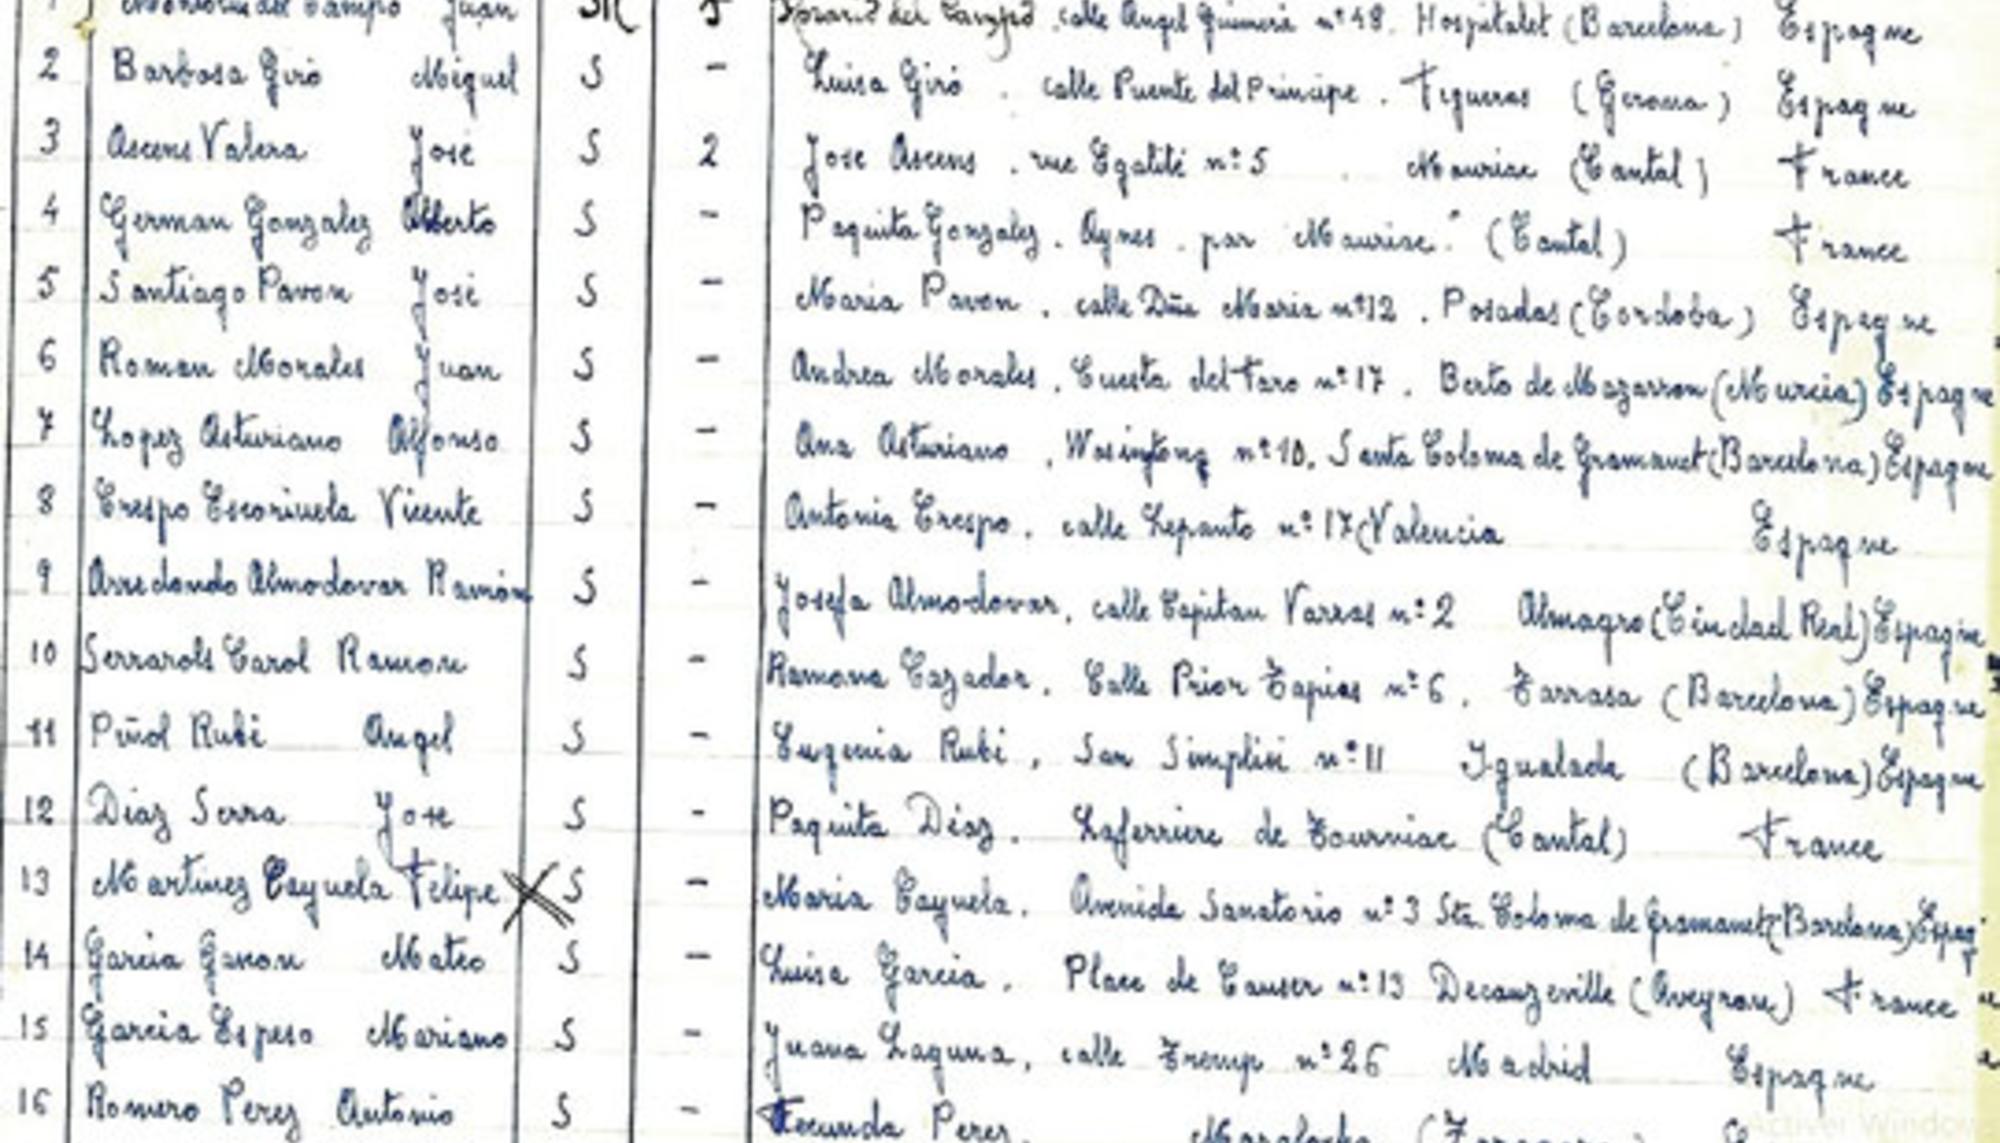 del Campo Juan calle Angel Guimerá nº 48. Hospitalet (Barcelona) Espagne
2 Barbosa Giró Miguel S - Luisa Giró . calle Puente del Principe . Figueras (Gerona) Espagne
3 Ascens Valera José S 2 Jose Ascens . rue Egalité nº 5 . Mauriac (Cantal) France
4 German Gonzalez Alberto S - Paquita Gonzalez . Aynes . par Mauriac . (Cantal) France
5 Santiago Pavon José S - Maria Pavon . calle Dña Maria nº 12 . Posadas (Cordoba) Espagne
6 Roman Morales Juan S - Andrea Morales . Cuesta del Faro nº 17 . de Mazarron (Murcia) Espagne
7 Lopez Asturiano Alfonso S - Ana Asturiano , nº 10, Santa Coloma de Gramanet (Barcelona) Espagne
8 Crespo Escoriuela Vicente S - Antonia Crespo . calle Lepanto nº 17 (Valencia Espagne
9 Arredondo Almodovar Ramón S - Josefa Almodovar, calle Capitan nº 2 Almagro (Ciudad Real) Espagne
10 Serrarols Carol Ramon S - Ramona Cazador . Calle Prior Tapias nº 6 . Tarrasa (Barcelona) Espagne
11 Piñol Rubi Angel S - Eugenia Rubi , San nº 11 Igualada (Barcelona) Espagne
12 Diaz Serra Jose S - Paquita Diaz . Laferriere de Tourniac (Cantal) France
13 Martinez Cayuela Felipe S - Maria Cayuela . Avenida Sanatorio nº 3 Sta. Coloma de Gramanet (Barcelona) Espag
14 Garcia Mateo S - Luisa Garcia . Place de nº 13 Decazeville (Aveyron) France
15 Garcia Espeso Mariano S - Juana Laguna , calle Tremp nº 26 Madrid Espagne
16 Romero Perez Antonio S - Perez .
Activer Window